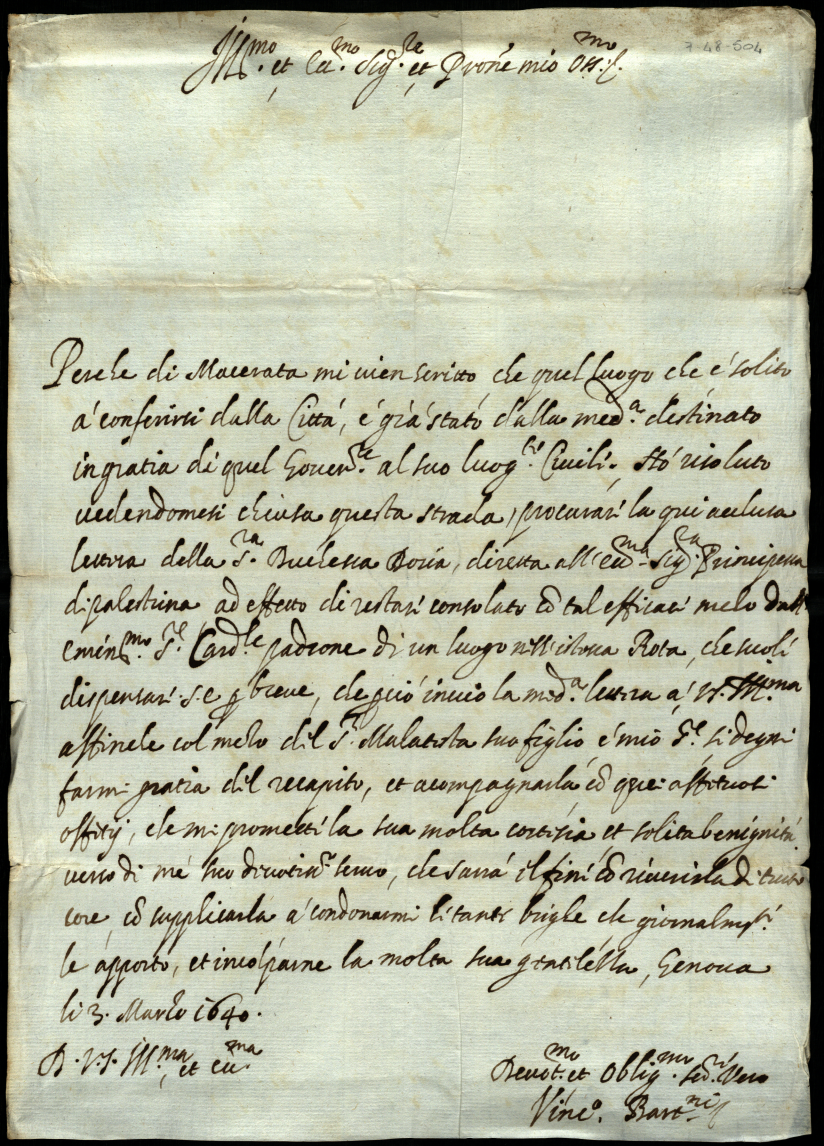 Ill.mo et Ecc.mo Sig.re et Prone mio Oss.mo
7-48-504
Perche di Macerata mi vien scritto che quel luogo che é solito
á conferirsi dalla Cittá, é giá stato dalla med.a destinato
in gratia di quel Gover.re al suo luog.te Civili. stó risoluto
vedendomesi chiusa questa strada, procurari la qui acclusa
lettera della S.ra Duchessa Doria, diretta all'Ecc.ma Sig.ra Principessa
di palestrina ad effetto di restari consolato cō tal efficaci mezo dall'
emin.mo S.r Card.le padrone di un luogo nell'istessa Rota, che suoli
dispensari S.E. p breve, che peió invio la med.a lettera á V.S. Ill.ma
affinche col mezo dil S.r Malatesta suo figlio é mio S.r si degni
farmi gratia dil recapito, et acompagnarla cō quei affetuosi
offitij, che mi prometti la sua molta cortisia et solita benignitá
verso di mé suo divotiss.o servo, che sará il fini cō riverirla di tutto
core, cō supplicarla á condonarmi li tanti brighe che giornalm.ti
le apporto, et incolparne la molta sua gentilezza, Genova
li 3. Marzo 1640.
D. V.S. Ill.ma et Ecc.ma
Devot.mo et Oblig.mo Ser.ri Vero
Vinc.o Bart.ni